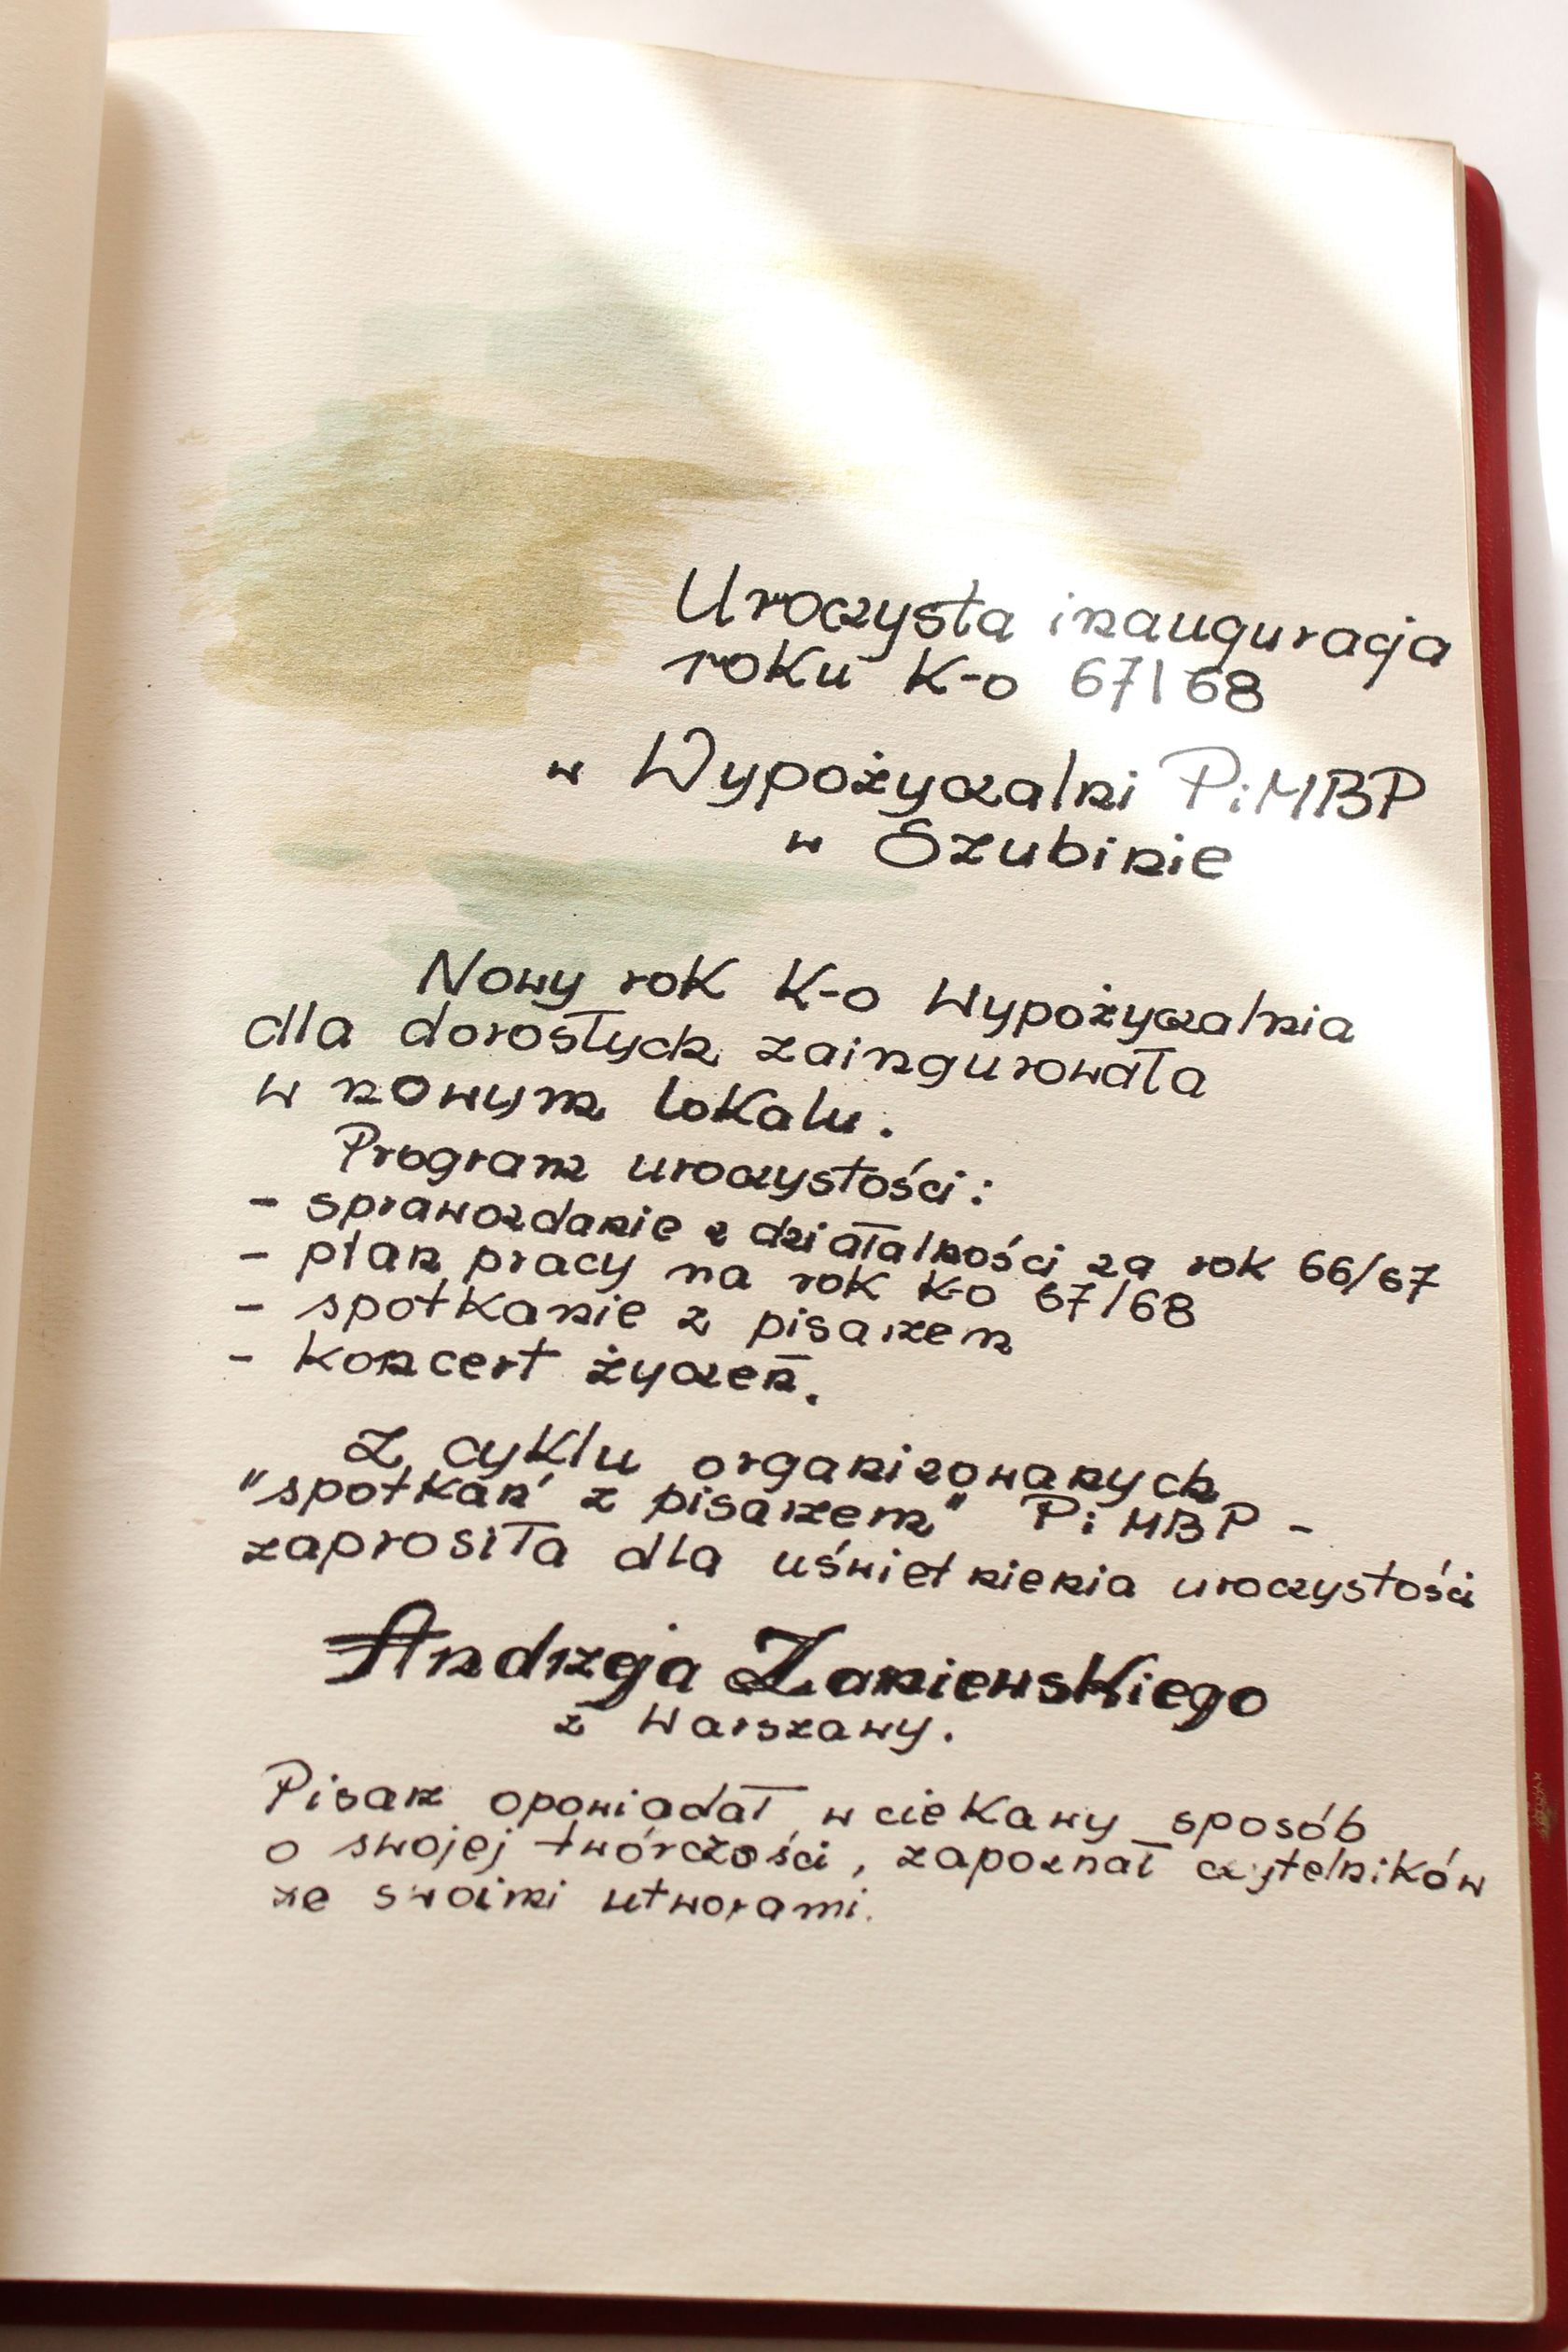 Uroczysta inauguracja
roku K-o 67/68
w Wypożyczalni PiMBP
w Szubinie
Nowy rok K-o Wypożyczalnia
dla dorosłych zaingurowała
w nowym lokalu.
Program uroczystości:
- sprawozdanie z działalności za rok 66/67
- plan pracy na rok K-o 67/68
- spotkanie z pisarzem
- koncert życzeń.
Z cyklu organizowanych
"spotkań z pisarzem" PiMBP -
zaprosiła dla uświetnienia uroczystości
Andrzeja Zaniewskiego
z Warszawy.
Pisarz opowiadał w ciekawy sposób
o swojej twórczości, zapoznał czytelników
ze swoimi utworami.